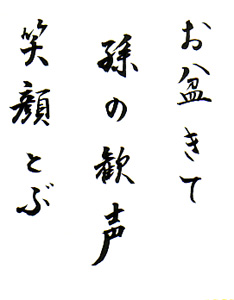 お盆きて
孫の歓声
笑顔とぶ